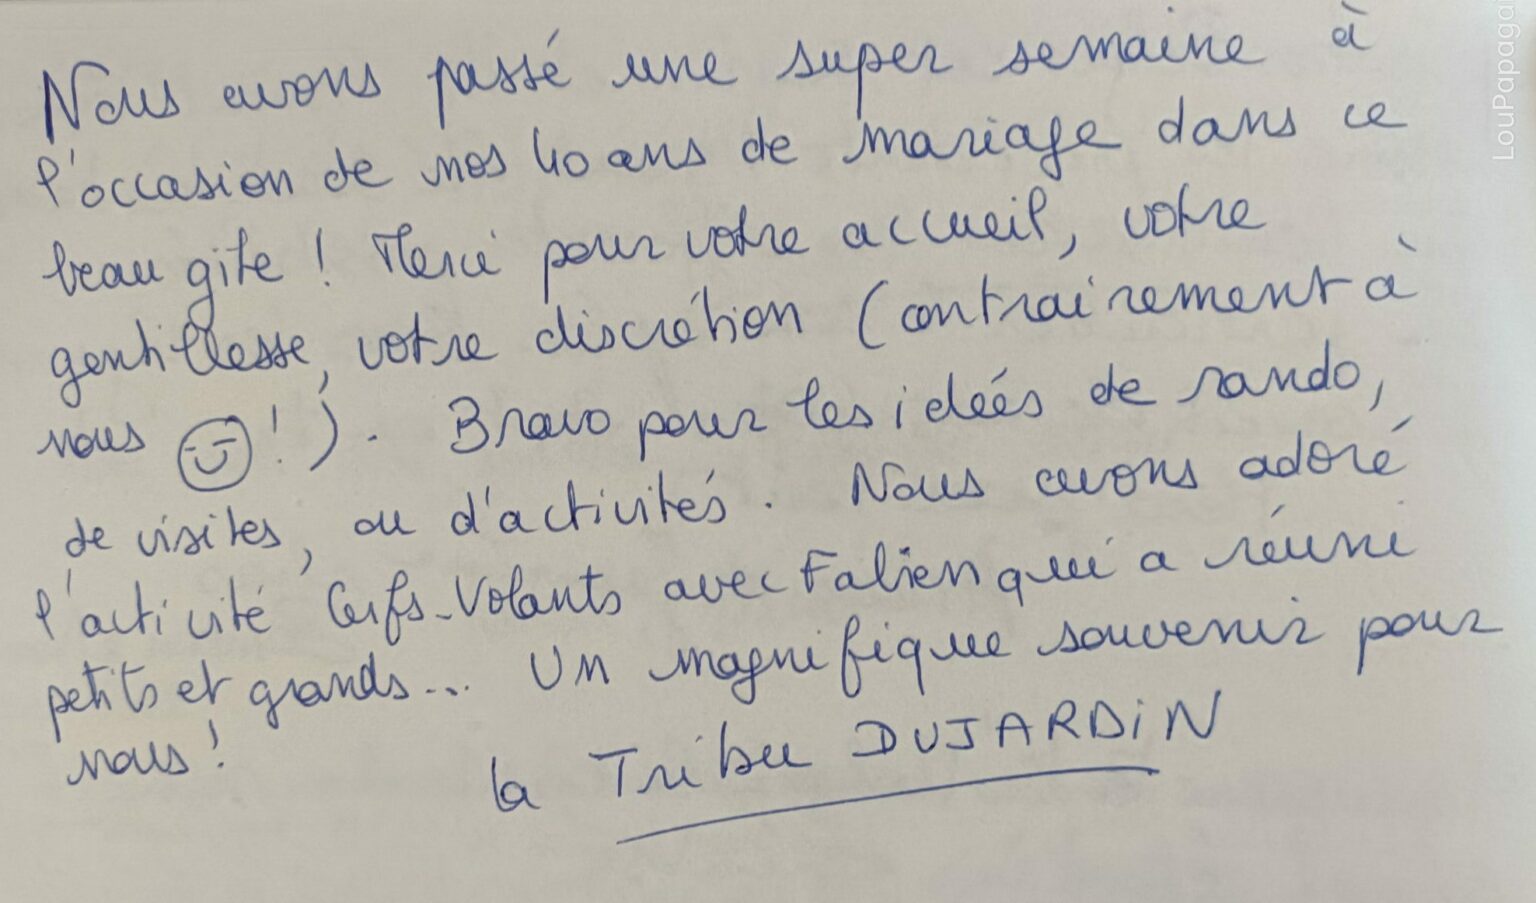 Nous avons passé une super semaine à
l'occasion de nos 40 ans de mariage dans ce
beau gite ! Merci pour votre accueil, votre
gentillesse, votre discrétion (contrairement à
nous !). Bravo pour les idées de rando,
de visites, ou d'activités. Nous avons adoré
l'activité Cerfs-Volants avec Fabien qui a réuni
petits et grands... Un magnifique souvenir pour
nous !
la Tribu DUJARDIN